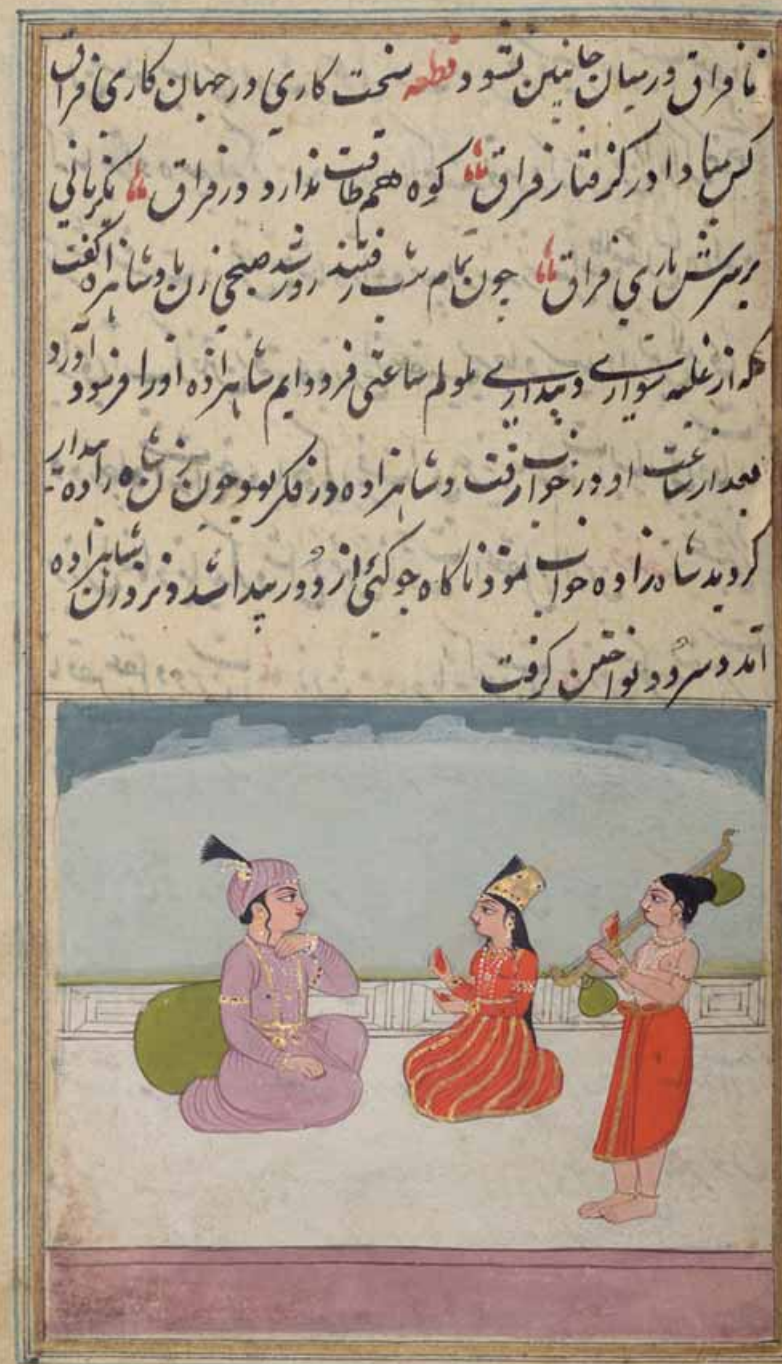 تا فراق درمیان جانبین نشود قطعه سخت کاری در جهان کاری فراق
کس مبادا در گرفتار فراق کوه هم طاقت ندارد در فراق
برسرش باری فراق چون تمام شب رفتند روز شد صبحی زن با شاهزاده گفت
که از غلبه سواری و بیداری ملولم ساعتی فرود ایم شاهزاده اورا فرود آورد
ساعت او در خواب رفت و شاهزاده در فکر بود چون زن شاهزاده بیدار
گردید شاه زاده خواب نمود ناگاه جوگئی از دور پیدا شد و نزد زن شاهزاده
آمد و سرود نواختن گرفت